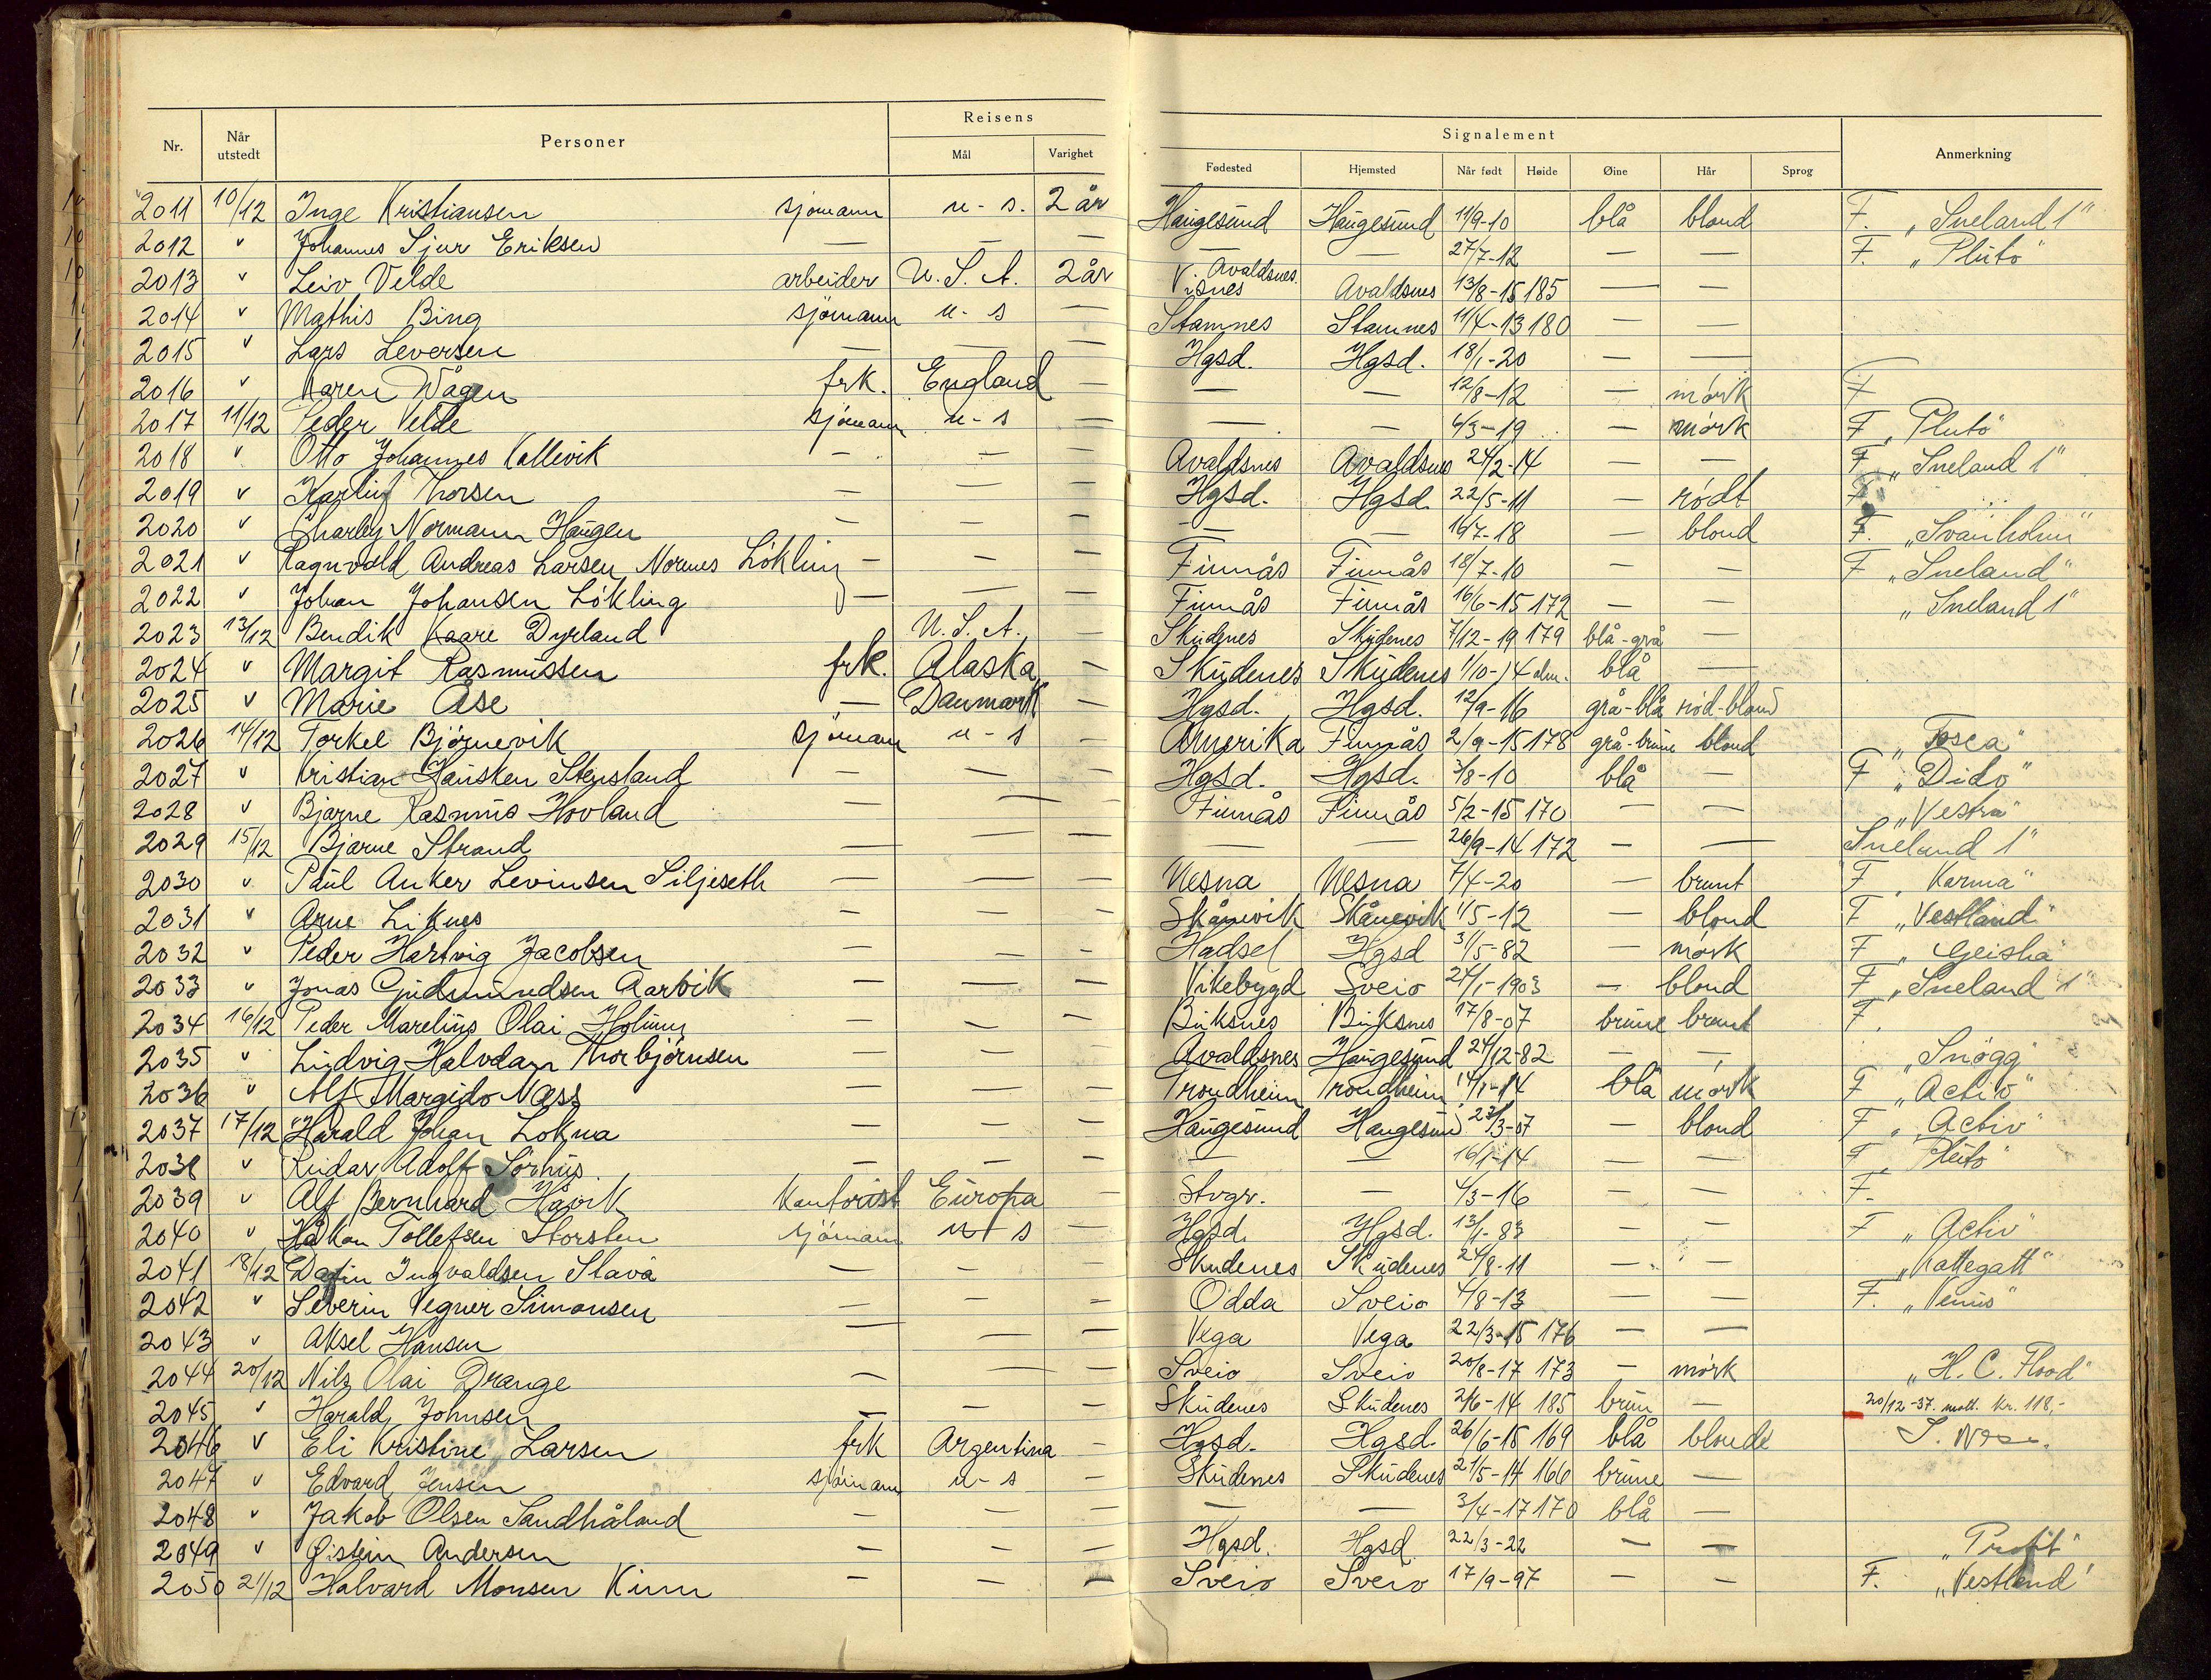 Nr. Når utstedt Personer Reisens Mål Varighet Signalement Fødested Hjemsted Når født Høide Øine Hår Sprog Anmerkning
2011 10/12 Inge Kristiansen sjømann u - s. 2 år Haugesund Haugesund 11/9-10 blå blond F. „Sneland 1"
2012 " Johannes Sjur Eriksen — — — — — 27/7-12 — — F. „Pluto"
2013 " Leiv Velde arbeider U.S.A. 2 år Visnes Avaldsnes. Avaldsnes 13/8-15 185 — —
2014 " Mathis Bing sjømann u - s — Stamnes Stamnes 11/4-13 180 — —
2015 " Lars Leversen — — — Hgsd. Hgsd. 18/1-20 — —
2016 " Karen Vågen frk. England — — — 12/8-12 — mørk F
2017 11/12 Peder Velde sjømann u - s — — — 6/3-19 — mørk F „Pluto"
2018 " Otto Johannes Kallevik — — — Avaldsnes Avaldsnes 24/2-14 — — F „Sneland 1"
2019 " Karluf Thorsen — — — Hgsd. Hgsd. 22/5-11 — rødt F
2020 " Charley Normann Haugen — — — — — 16/7-18 — blond F. „Svanholm"
2021 " Ragnvald Andreas Larsen Nornes Løkling — — — Finnås Finnås 18/7-10 — — F „Sneland"
2022 " Johan Johansen Løkling — — — Finnås Finnås 16/6-15 172 — — „Sneland 1"
2023 13/12 Bendik Kaare Dyrland U.S.A. — Skudenes Skudenes 7/12-19 179 blå-grå —
2024 " Margit Rasmussen frk. Alaska — Skudenes Skudenes 1/10-14 alm. blå —
2025 " Marie Åse — Danmark — Hgsd. Hgsd. 12/9-16 grå-blå rød-blond
2026 14/12 Torkel Bjørnevik sjømann u - s — Amerika Finnås 2/9-15 178 grå-brune blond „Tosca"
2027 " Kristian Hausken Stensland — — — Hgsd. Hgsd. 3/8-10 blå — F „Dido"
2028 " Bjarne Rasmus Hovland — — — Finnås Finnås 5/2-15 170 — — „Vestra"
2029 15/12 Bjarne Strand — — — — — 26/9-14 172 — — Sneland 1"
2030 " Paul Anker Levinsen Siljeseth — — — Nesna Nesna 7/4-20 — brunt F „Karma"
2031 " Arne Liknes — — — Skånevik Skånevik 1/5-12 — blond F „Vestland"
2032 " Peder Hartvig Jacobsen — — — Hadsel Hgsd 31/5-82 — mørk F „Geisha"
2033 " Jonas Gudmundsen Aarvik — — — Vikebygd Sveio 24/1-1903 — blond F „Sneland 1"
2034 16/12 Peder Marelius Olai — — — Buksnes Buksnes 17/8-07 brune brunt F.
2035 " Ludvig Halvdan Thorbjørnsen — — — Avaldsnes Haugesund 24/12-82 — — „Snøgg"
2036 " Alf Margido Næss — — — Trondheim Trondheim 14/1-14 blå mørk F „Activ"
2037 17/12 Harald Johan Lokna — — — Haugesund Haugesund 23/3-07 — blond F „Activ"
2038 " Reidar Adolf Sørhus — — — — — 16/1-14 — — F „Pluto"
2039 " Alf Bernhard Håvik Kontorist Europa — Stvgr. — 4/3-16 — — F.
2040 " Håkon Tollefsen Storsten sjømann u - s — Hgsd. Hgsd. 13/1-83 — — F „Activ"
2041 18/12 Dagfin Ingvaldsen Stava — — — Skudenes Skudenes 24/8-11 — — „Kattegatt"
2042 " Severin Vegner Simonsen — — — Odda Sveio 4/8-13 — — F. „Venus"
2043 " Aksel Hansen — — — Vega Vega 22/3-15 176 — —
2044 20/12 Nils Olai Drange — — — Sveio Sveio 20/8-17 173 — mørk „H.C. Flood"
2045 " Harald Johnsen — — — Skudenes Skudenes 2/6-14 185 brun — 20/12-37. mott. kr. 118,-
2046 " Eli Kristine Larsen frk Argentina — Hgsd. Hgsd. 26/6-15 169 blå blonde
2047 " Edvard Jensen sjømann u - s — Skudenes Skudenes 21/5-14 166 brune —
2048 " Jakob Olsen Sandhåland — — — — — 3/4-17 170 blå —
2049 " Øistein Andersen — — — Hgsd. Hgsd. 22/3-22 — — „Profit"
2050 21/12 Halvard Monsen Kinn — — — Sveio Sveio 17/9-97 — — F. „Vestland"